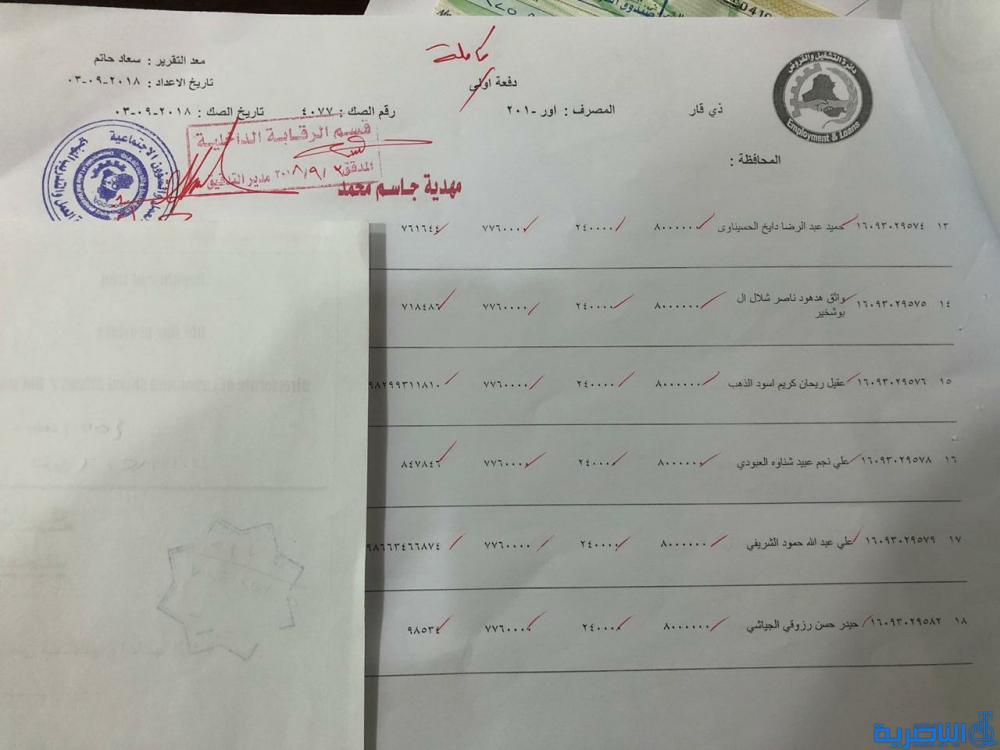 كاملة
معد التقرير : سعاد حاتم
دفعة اولى
تاريخ الاعداد : ٢٠١٨-٠٩-٠٣
دائرة التشغيل والقروض
Employment & Loans
ذي قار
المصرف : اور -٢٠١
رقم الصك : ٤٠٧٧
تاريخ الصك : ٢٠١٨-٠٩-٠٣
المحافظة :
قسم الرقابة الداخلية
المدقق
مدير التدقيق
مهدية جاسم محمد
١٣ ١٦٠٩٣٠٢٩٥٧٤ حميد عبد الرضا دايخ الحسيناوى ٨٠٠٠٠٠٠ ٢٤٠٠٠٠ ٧٧٦٠٠٠٠ ٧٦١٦٤٤
١٤ ١٦٠٩٣٠٢٩٥٧٥ واثق هدهود ناصر شلال ال بوشخير ٨٠٠٠٠٠٠ ٢٤٠٠٠٠ ٧٧٦٠٠٠٠ ٧١٨٤٨٦
١٥ ١٦٠٩٣٠٢٩٥٧٦ عقيل ريحان كريم اسود الذهب ٨٠٠٠٠٠٠ ٢٤٠٠٠٠ ٧٧٦٠٠٠٠ ٩٨٢٩٩٣١١٨١٠
١٦ ١٦٠٩٣٠٢٩٥٧٨ علي نجم عبيد شناوه العبودي ٨٠٠٠٠٠٠ ٢٤٠٠٠٠ ٧٧٦٠٠٠٠ ٨٤٧٨٤٦
١٧ ١٦٠٩٣٠٢٩٥٧٩ علي عبد الله حمود الشريفي ٨٠٠٠٠٠٠ ٢٤٠٠٠٠ ٧٧٦٠٠٠٠ ٩٨٦٦٣٤٦٦٨٧٤
١٨ ١٦٠٩٣٠٢٩٥٨٢ حيدر حسن رزوقي الجياشي ٨٠٠٠٠٠٠ ٢٤٠٠٠٠ ٧٧٦٠٠٠٠ ٩٨٥٣٤
الناصرية